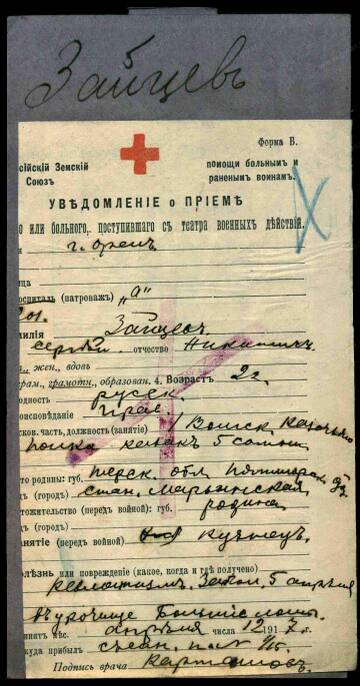 Зайцевъ
Форма Б.
сійскій Земскій помощи больнымъ и
Союзъ раненымъ воинамъ.
УВѢДОМЛЕНІЕ о ПРІЕМѢ
о или больного, поступившаго съ театра военныхъ дѣйствій.
г. Орелъ
ица
оспиталь (патронажъ) „а"
милія Зайцевъ
Сергѣй отчество Никитичъ
, жен., вдовъ
рам., грамотн., образован. 4. Возрастъ 2 г.
одность русск.
оисповѣданіе прав.
сков. часть, должность (занятіе) 1 Волгск. Казачьяго
полка казакъ 5 сотни
то родины: губ. Терск. обл. Пятигорск.
(городъ) стан. Марьинская
тожительство (передъ войной): губ. родина
(городъ)
анятіе (передъ войной) кузнецъ.
олѣзнь или поврежденіе (какое, когда и гдѣ получено)
Ревматизмъ. Забол. 5 апрѣля
въ урочище Большіе
инятъ мѣс. апрѣля числа 12 1917 г.
куда прибылъ
Подпись врача